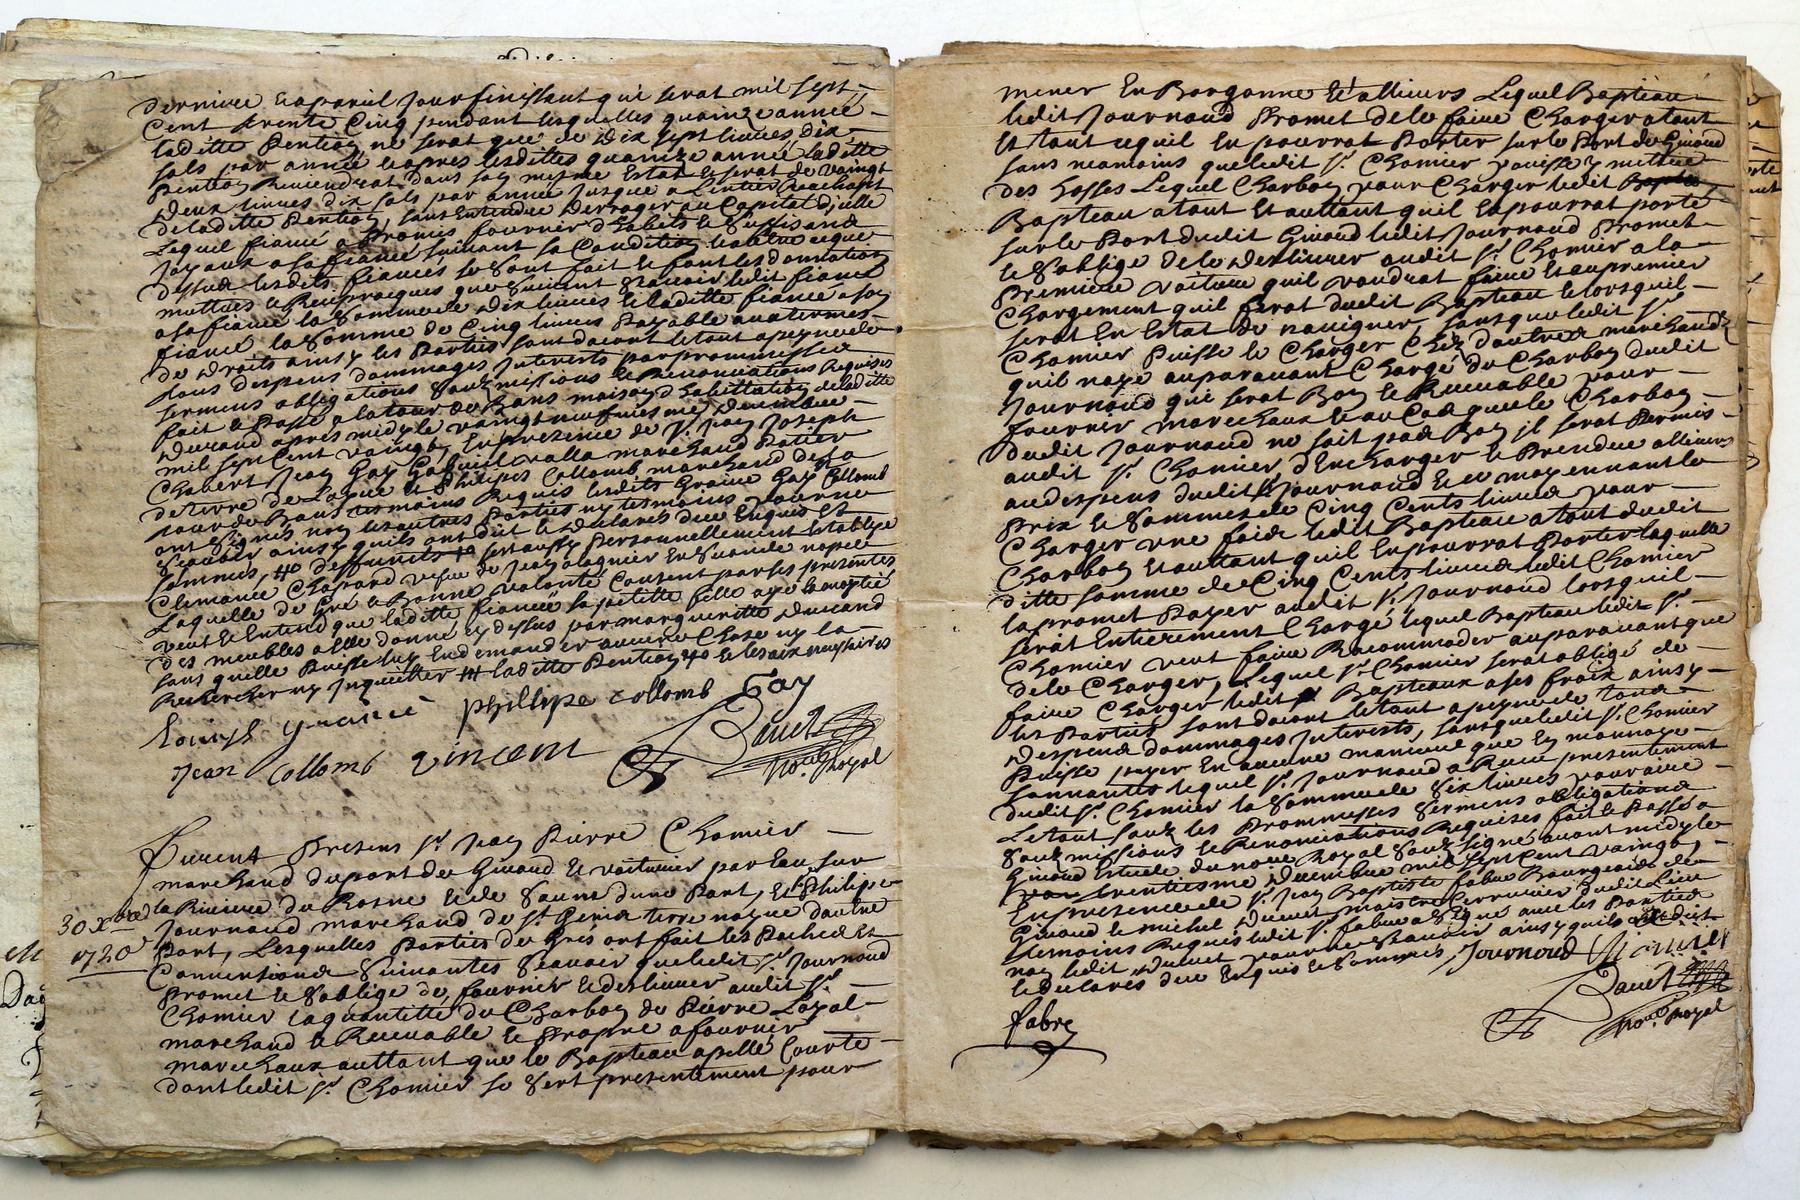 derniere et apareil jour finissant qui serat mil sept
Cent trente Cinq pendant lesquelles quainze année
laditte Pention ne serat que de Dix sept livres dix
sols par année et apres lesdittes quainze année laditte
Pention Reviendrat dans son mesme Estat et serat de vaingt
deux livres dix sols par année Jusque a L'entier Reachapt
de laditte Pention, sans Entendre Derroger au Capital d'jcelle
Lequel fiancé a Promis fournir d'habits et
Joyaux a sa fiancée suivant sa Condition
dessus lesdits fiancés se sont fait et font les donnation
muttues et Reciproques que suivent scavoir ledit fiancé
a sa fiancée la somme de dix livres et laditte fiancée a son
fiancé la somme de Cinq livres payable aux termes
de droits ainsy les Parties sont dacort le tout a peyne de
tous despens dommages Interests par prommesses
sermens obligations soubzmissions et Renonciations Requises
fait et Passé a la tour de Bans maison d'habittation de laditte
Durand apres midy le vaingt neufviesme decembre
mil sept Cent vaingt, En presence de Sr Jean Joseph
Chabert Jean Gay Gabriel valla marchand Potier
de terre de et Philipes Collomb marchand de la
tour de Bans tesmoins Requis lesdits Gay Collomb
ont signés non les autres Parties ny tesmoins
scavoir ainsy quils ont dit et declares deue Enquis et
sommés, sest aussy personnellement Establye
Clemance Chapard vefve de Jean
Laquelle de Gré et Bonne volonté Consent par ses presentes
veut et Entend que laditte fiancée sa petitte fille aye
des meubles a elle donné cy dessus par margueritte Durand
sans quelle Puisse luy En demander aucune Chose ny la
Rechercher ny Jnquietter laditte Pention
phillipe collomb Gay
Jean Collomb vincent Davet
no.re Royal
Furent Presens Sr Jean Pierre Chomier
marchand du port de Givord et voiturier par Eau sur
la Riviere du Rosne et de Saune d'une Part, et Sr Philipe
30 Xbre
Journoud marchand de St Genis terre noyre d'autre
1720
Part, Lesquelles Parties de Grés ont fait les Paches et
Conventions suivantes scavoir que ledit Sr Journoud
Promet et s'oblige de fournir et deslivrer audit Sr
Chomier la quantitté du Charbon de Pierre Loyal
marchand et Recevable et Propre a fournir
marechaux autant que le Bapteau apellé Courte
dont ledit Sr Chomier se sert presentement pour
mener En Borgonne et allieurs Lequel Bapteau
ledit Journoud Promet de le faire Charger a tant
Et tant ce quil En pourrat Porter sur le Port de Givord
sans neamoins que ledit Sr Chomier puisse y mettre
des hosses Lequel Charbon pour Charger ledit
Bapteau a tant Et autant qu'il En pourrat porté
sur le Port dudit Givord ledit Journoud Promet
et s'oblige de le deslivrer audit Sr Chomier a la
Premiere voiture quil voudrat faire Et au premier
Chargement quil ferat dudit Bapteau et lorsquil
serat En Estat de naviguer, sans que ledit Sr
Chomier Puisse le Charger Chez d'autres marchands
quil naye auparavant Chargé du Charbon dudit
Journoud qui serat Bon et Recevable pour
fournir marechaux et au Cas que le Charbon
dudit Journoud ne soit pas Bon jl serat Permis
audit Sr Chomier d'En charger et Prendre allieurs
au despens dudit Sr Journoud et ce moyennant le
Prix et Somme de Cinq Cents livres pour
Charger une fois ledit Bapteau a tout dudit
Charbon et autant qu'il En pourrat Porter laquelle
ditte somme de Cinq Cents livres ledit Chomier
la promet Payer audit Sr Journoud lors quil
serat Entierement Chargé lequel Bapteau ledit Sr
Chomier veut faire Racommoder auparavant que
de le Charger, Lequel Sr Chomier serat obligé de
faire Charger ledit Bapteaux a ses fraix ainsy
les Parties sont dacort le tout a peyne de tous
despens dommages Interests, sans que ledit Sr Chomier
Puisse payer En aucune maniere que En monnoye
sonnantes lequel Sr Journoud a Receu presentement
dudit Sr Chomier la somme de six livres pour
Le tout soubz les Prommesses Sermens obligations
soubzmissions et Renonciations Requises fait et Passé a
Givord Estude du no.re Royal soubzsigné avant midy le
trentiesme decembre mil sept Cent vaingt,
En presence de Sr Jean Baptiste fabre Bourgeois de
Givord et michel maistre serrurier dudit Lieu
tesmoins Requis ledit Sr fabre a signé avec les Parties
non ledit pour ne scavoir ainsy quils ont dit
et declares deue Enquis et sommés, Journoud Chomier
Davet
fabre
no.re Royal